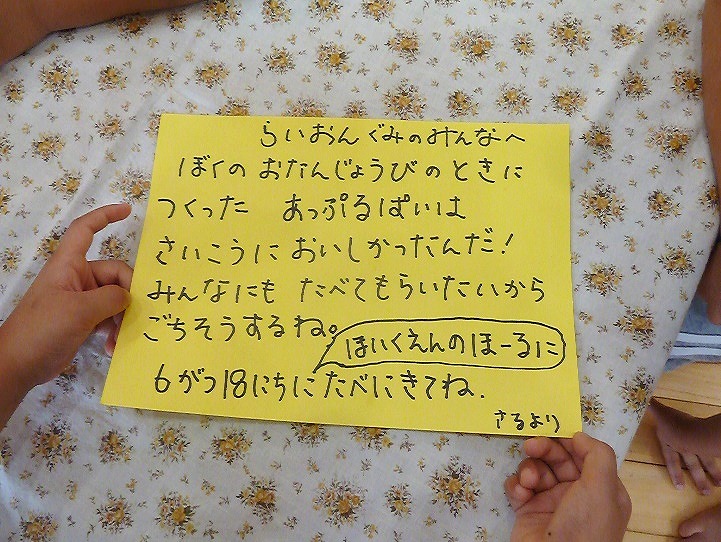 らいおんぐみのみんなへ
ぼくの おたんじょうびのときに
つくった あっぷるぱいは
さいこうに おいしかったんだ!
みんなにも たべてもらいたいから
ごちそうするね。
ほいくえんのほーるに
6がつ18にちにたべにきてね.
さるより